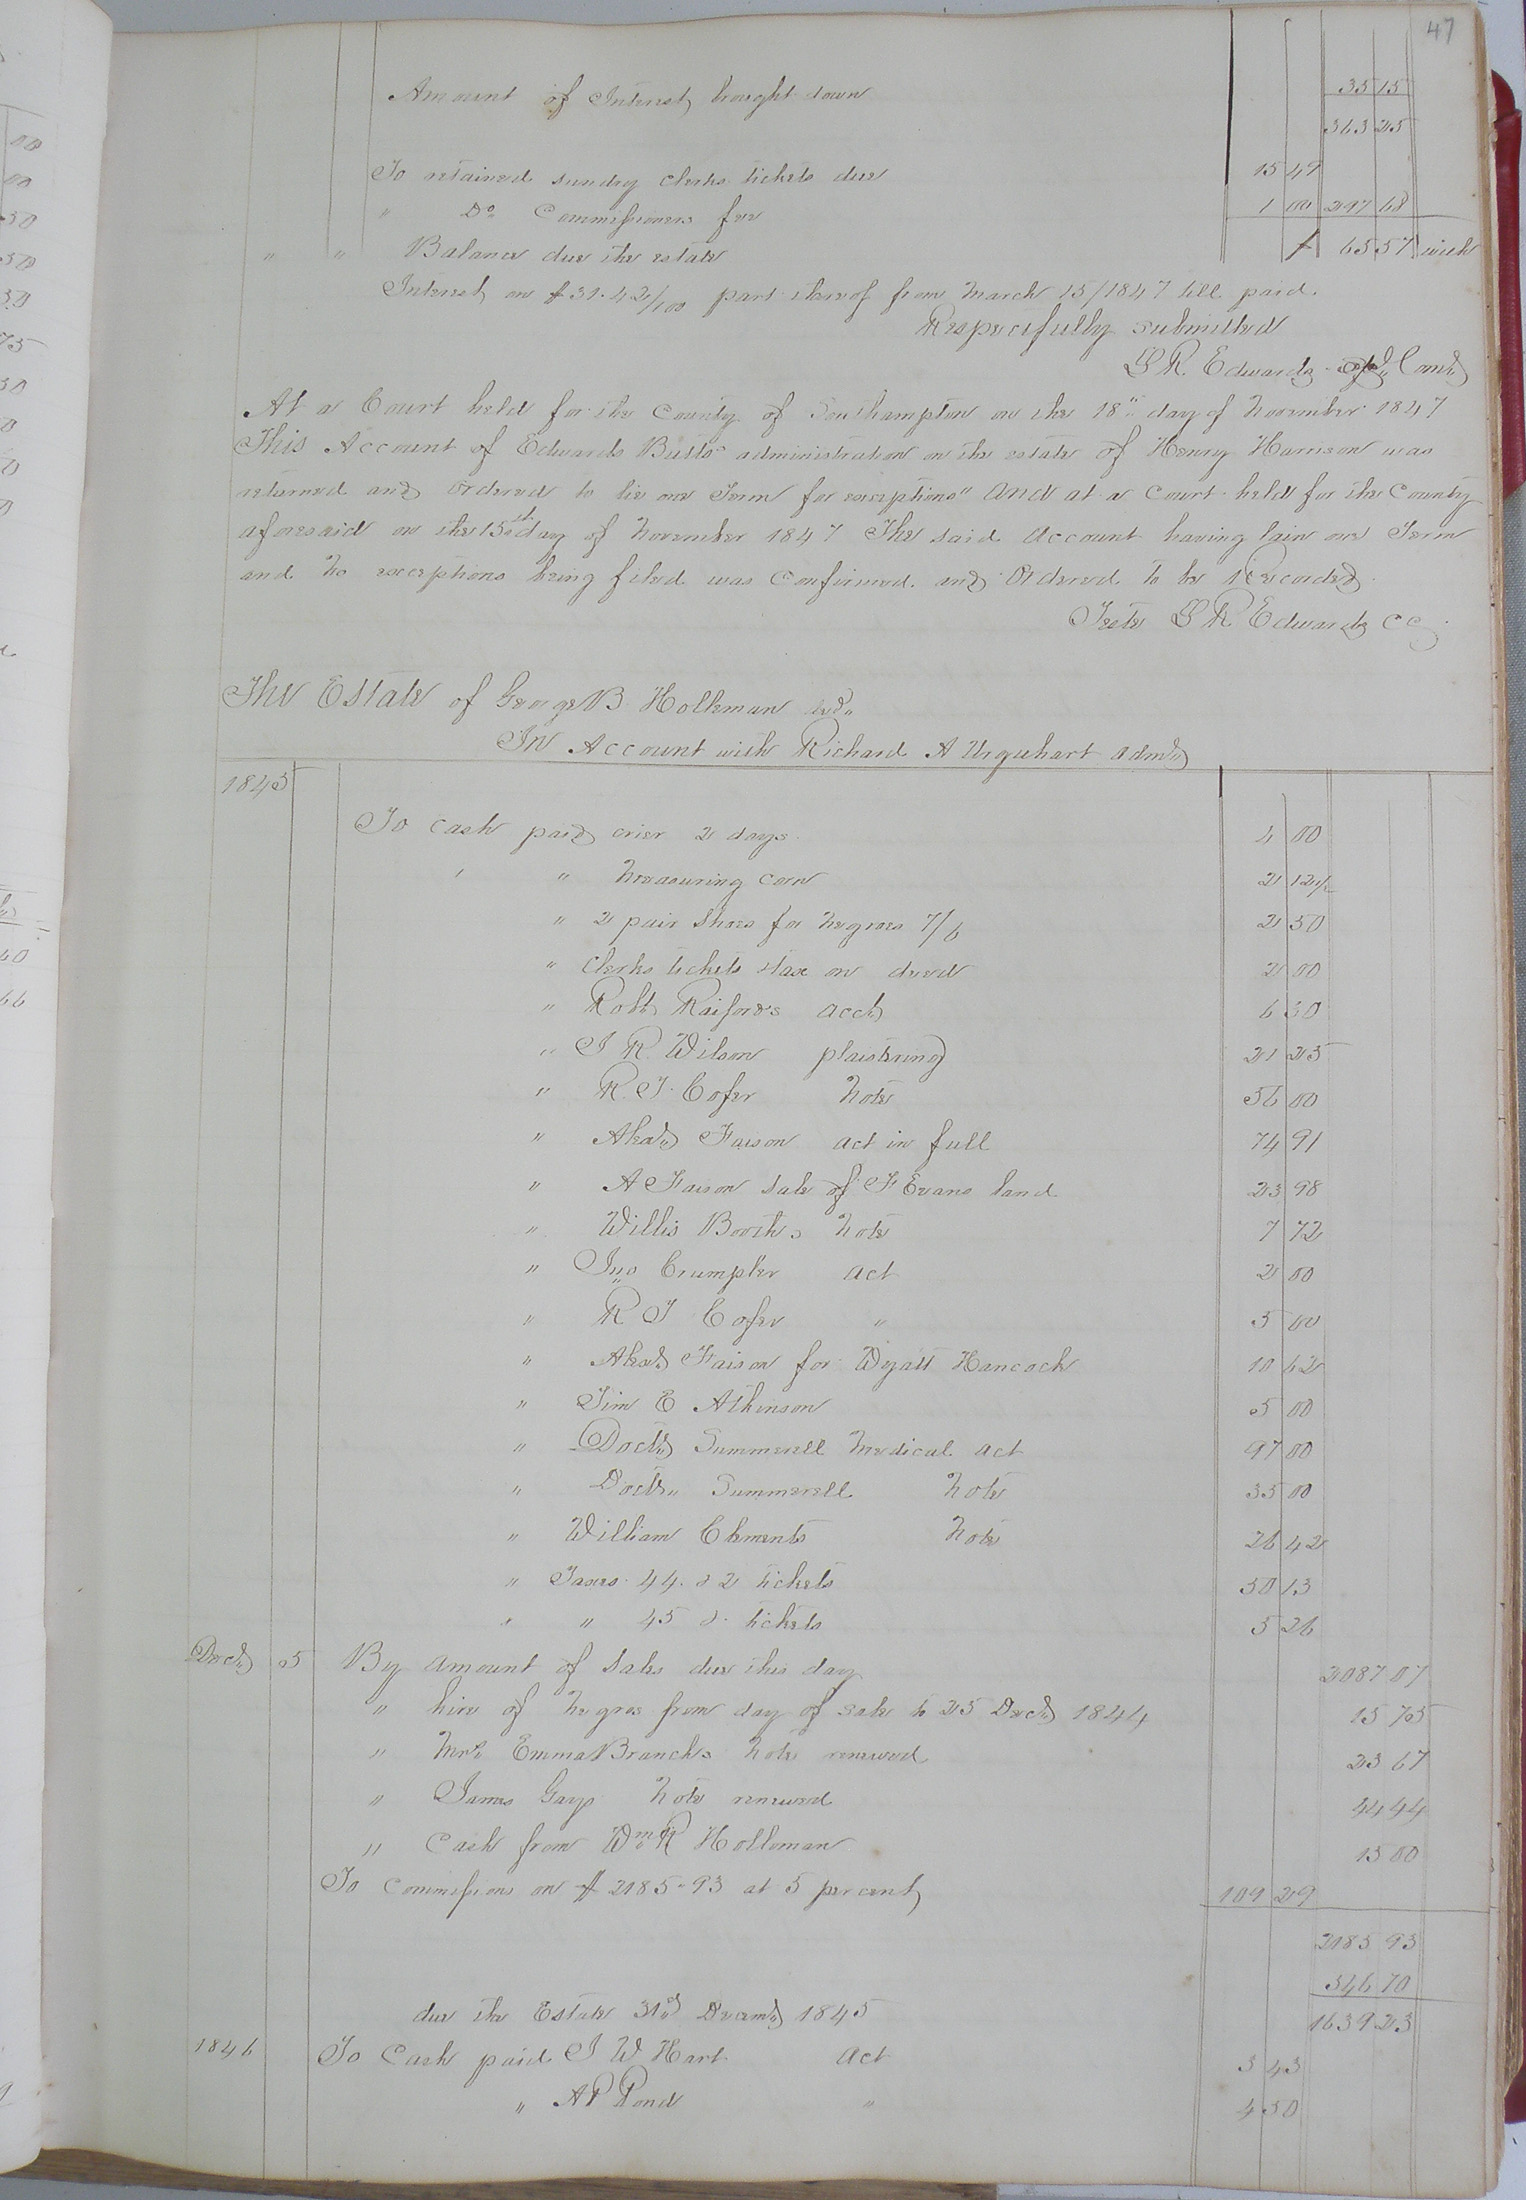 47
Amount of Interest brought down 35 15
363 25
To retained sundry clerks tickets due 15 49
" Do Commissioners fee 1 00 297 68
" " Balance due the estate $ 65 57 with
Interest on $31.42/100 part thereof from March 15/1847 till paid.
Respectfully submitted
L R. Edwards Comr
At a Court held for the County of Southampton on the 18th day of November 1847
This Account of Edwards Butts administration on the estate of Henry Harrison was
returned and Ordered to lie one Term for exceptions" And at a Court held for the County
aforesaid on the 15th day of November 1847 The said Account having lain one Term
and no exceptions being filed was Confirmed and Ordered To be Recorded.
Teste L R Edwards CC
The Estate of George B Holleman decd
In Account with Richard A Urquhart Admr
1845
To cash paid crier 2 days 4 00
" " Measuring corn 2 12½
" 2 pair Shoes for negroes 7/6 2 50
" Clerks tickets & tax on deed 2 00
" Robt Raifords acct 6 30
" J R. Wilson plaistering 21 25
" R. T. Cofer Note 56 00
" Ahad Faison act in full 74 91
" A Faison sale of F Evans land 23 98
" Willis Booths note 7 72
" Jno Crumpler act 2 00
" R T Cofer " 5 00
" Ahad Faison for Wyatt Hancock 10 62
" Tim E Atkinson 5 00
" Doctr Summerell Medical act 97 00
" Doctr Summerell Note 35 00
" William Clements Note 26 42
" Taxes 44. & 2 tickets 50 13
" " 45 & tickets 5 26
Decr 25 By amount of Sales due this day 2087 07
" hire of negroes from day of sale to 25 Decr 1844 15 75
" Mrs Emma Branchs note renewed 23 67
" James Gays Note renewed 44 44
" Cash from Wm R Holloman 15 00
To Commissions on $2185.93 at 5 percent 109 29
2185 93
546 70
due the Estate 31st Decemr 1845 1639 23
1846 To Cash paid J W Hart act 3 43
" A P Pond " 4 50